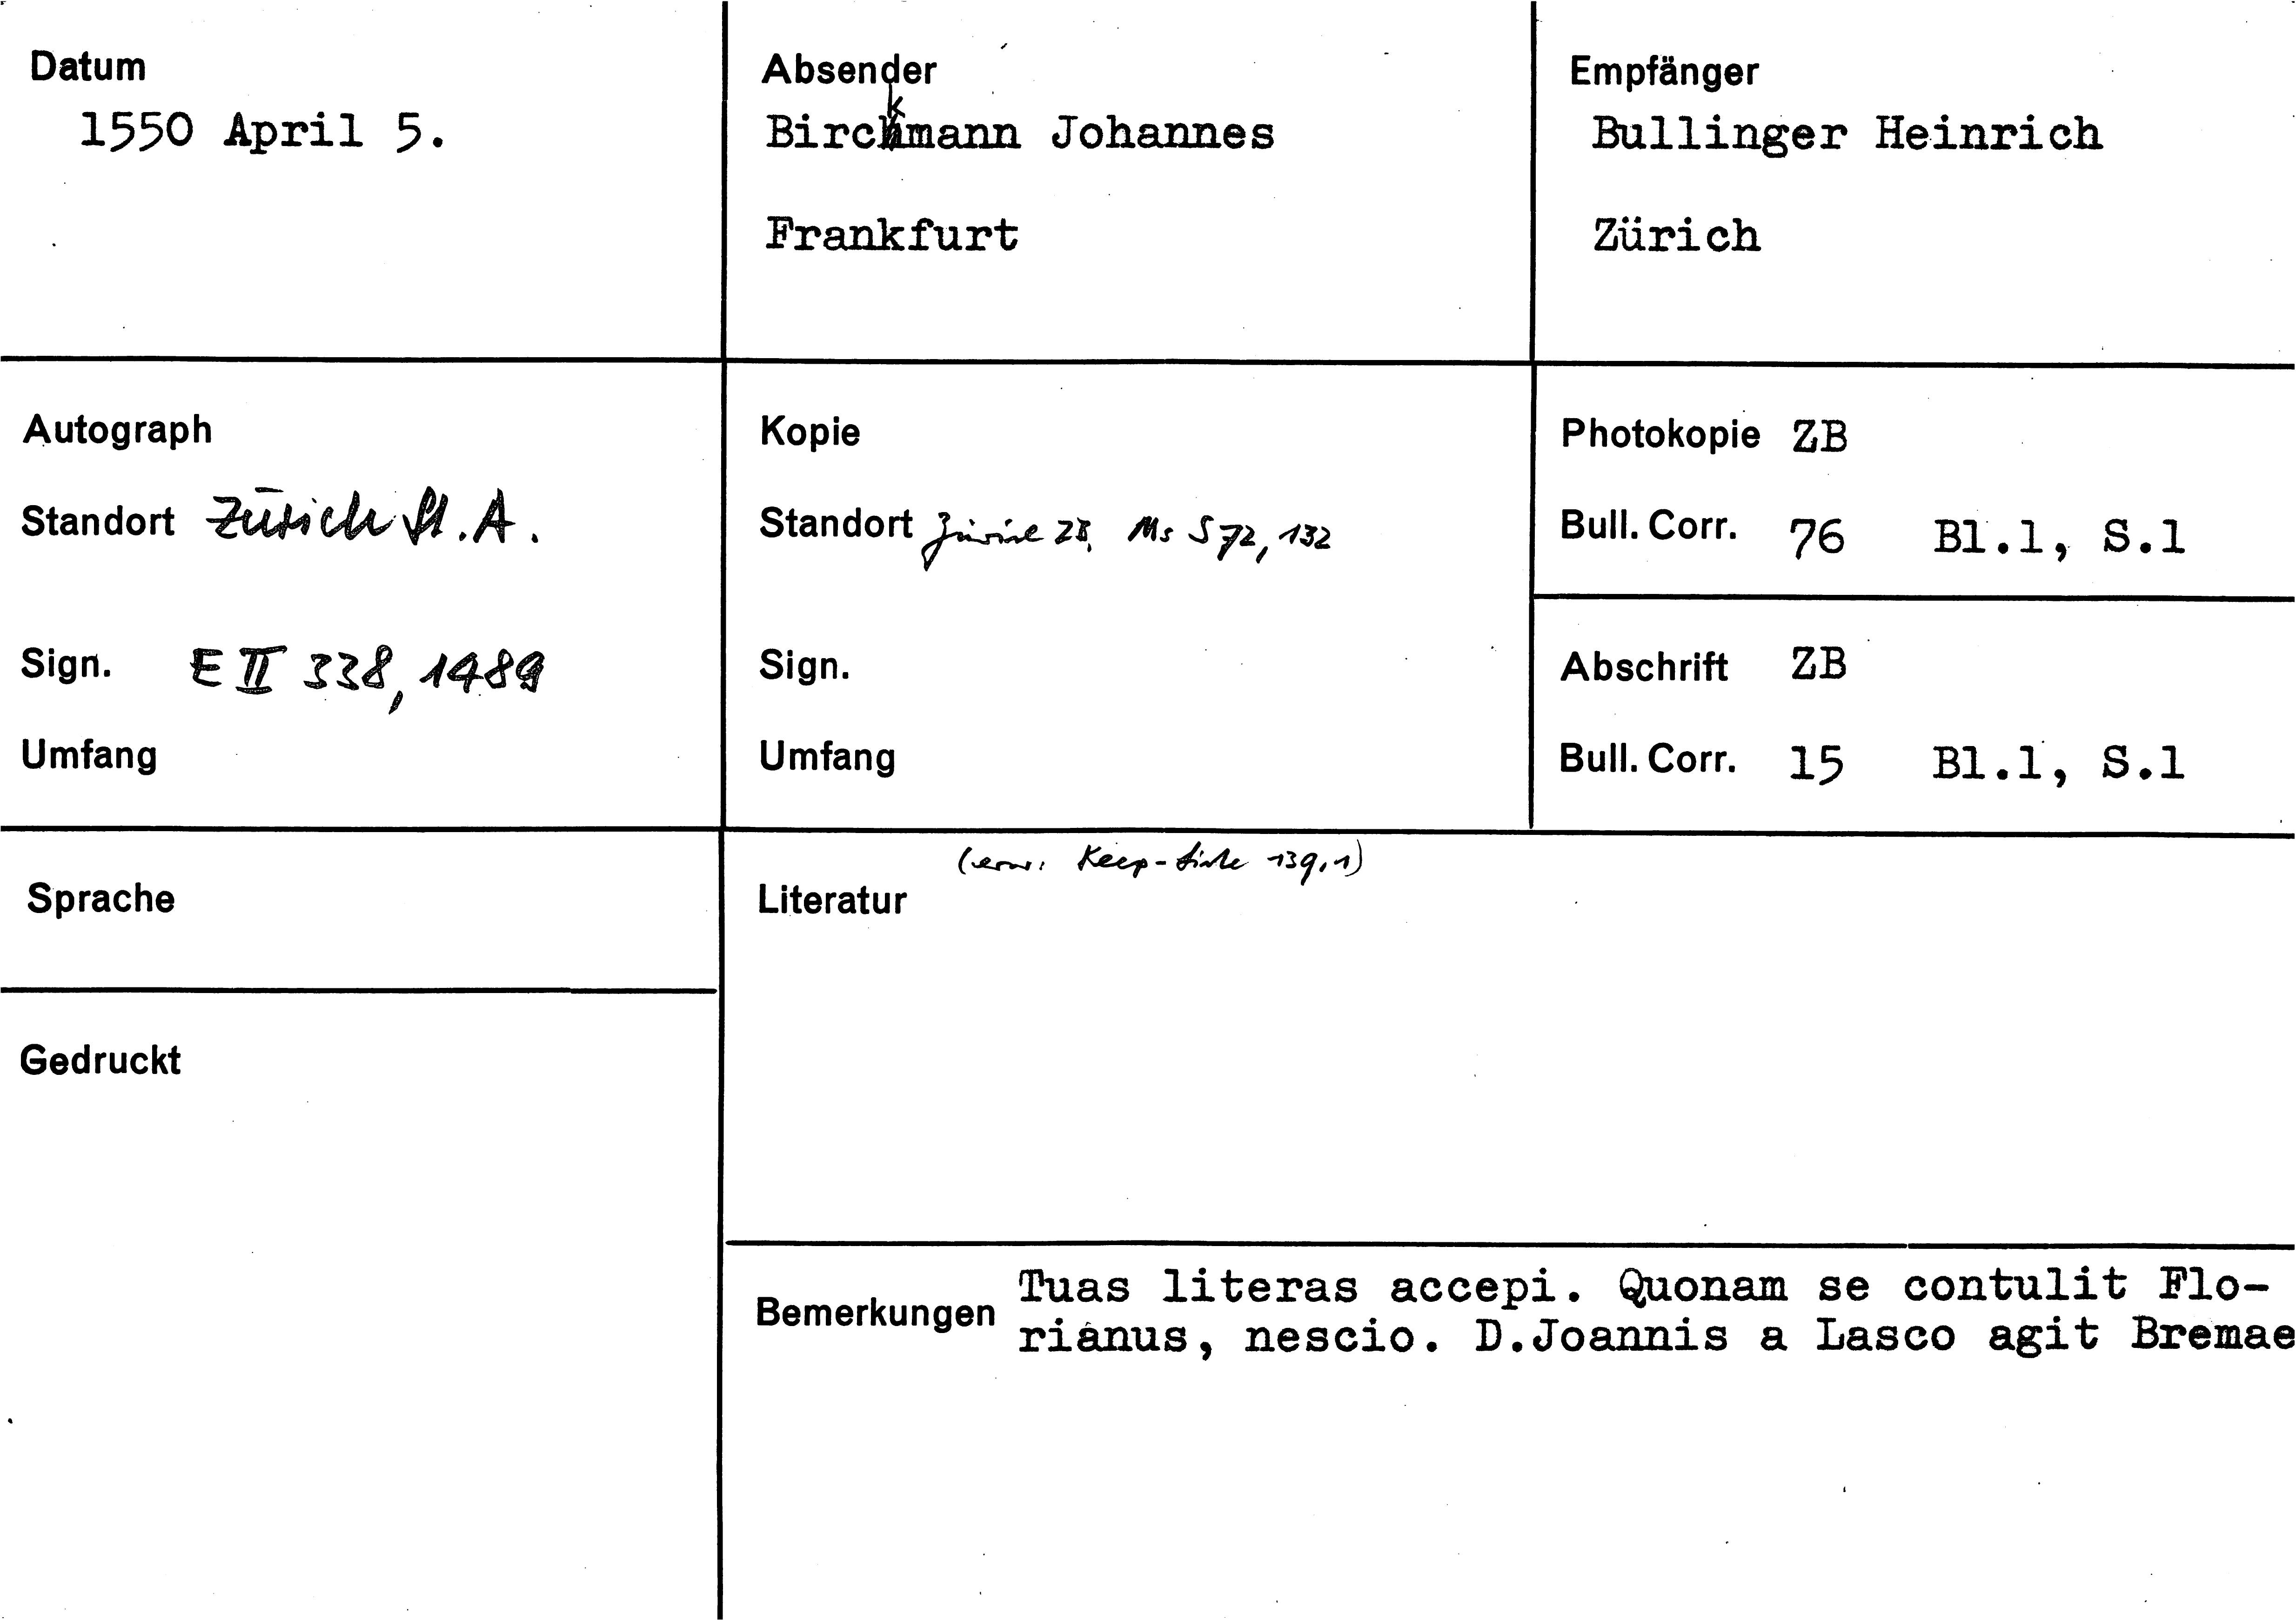 Datum
1550 April 5.
Absender
Birckmann Johannes
Frankfurt
Empfänger
Bullinger Heinrich
Zürich
Autograph
Standort Zürich St.A.
Sign. E II 338, 1489
Umfang
Kopie
Standort Zürich ZB, Ms S 72, 132
Sign.
Umfang
Photokopie ZB
Bull. Corr. 76 Bl.1, S.1
Abschrift ZB
Bull. Corr. 15 Bl.1, S.1
Sprache
Gedruckt
(erw: Keep- 139,1)
Literatur
Bemerkungen
Tuas literas accepi. Quonam se contulit Flo-
rianus, nescio. D.Joannis a Lasco agit Bremae